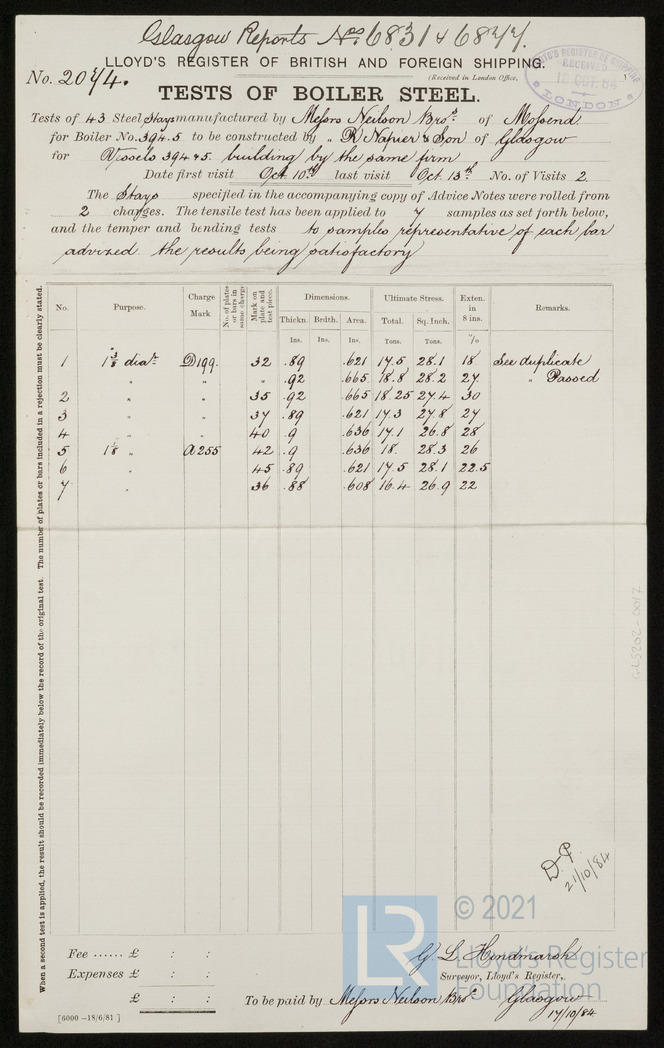 Glasgow Reports No. 6831 & 6877.
LLOYD'S REGISTER OF BRITISH AND FOREIGN SHIPPING.
No. 2074.
(Received in London Office,
LLOYD'S REGISTER OF SHIPPING
RECEIVED
18 OCT. 84
LONDON
TESTS OF BOILER STEEL.
Tests of 43 Steel Stays manufactured by Messrs Neilson Bros. of Mossend
for Boiler No. 394.5 to be constructed by " R Napier & Son of Glasgow
for Vessels 394 & 5. building by the same firm
Date first visit Oct. 10th last visit Oct. 13th No. of Visits 2.
The Stays specified in the accompanying copy of Advice Notes were rolled from
2 charges. The tensile test has been applied to 7 samples as set forth below,
and the temper and bending tests to samples representative of each bar
advised the results being satisfactory
No. Purpose. Charge Mark No. of plates or bars in same charge Mark on plate and test piece. Dimensions. Ultimate Stress. Exten. in 8 ins. Remarks.
Thickn. Brdth. Area. Total. Sq. Inch.
Ins. Ins. Ins. Tons. Tons. %
1 1 3/8 diar. D199. 32 .89 .621 17.5 28.1 18 See duplicate
" " " .92 .665 18.8 28.2 27 " Passed
2 " " 35 .92 .665 18.25 27.4 30
3 " " 37 .89 .621 17.3 27.8 27
4 " " 40 .9 .636 17.1 26.8 28
5 1 1/8 " A255 42 .9 .636 18. 28.3 26
6 " 45 .89 .621 17.5 28.1 22.5
7 " 36 .88 .608 16.4 26.9 22
When a second test is applied, the result should be recorded immediately below the record of the original test. The number of plates or bars included in a rejection must be clearly stated.
GLS202-0017
D.P.
21/10/84
© 2021
LR
Lloyd's Register
Foundation
Fee ...... £ : :
Expenses £ : :
£ : :
G. L. Hindmarsh
Surveyor, Lloyd's Register,
To be paid by Messrs Neilson Bros. Glasgow
17/10/84
[6000 –18/6/81 ]